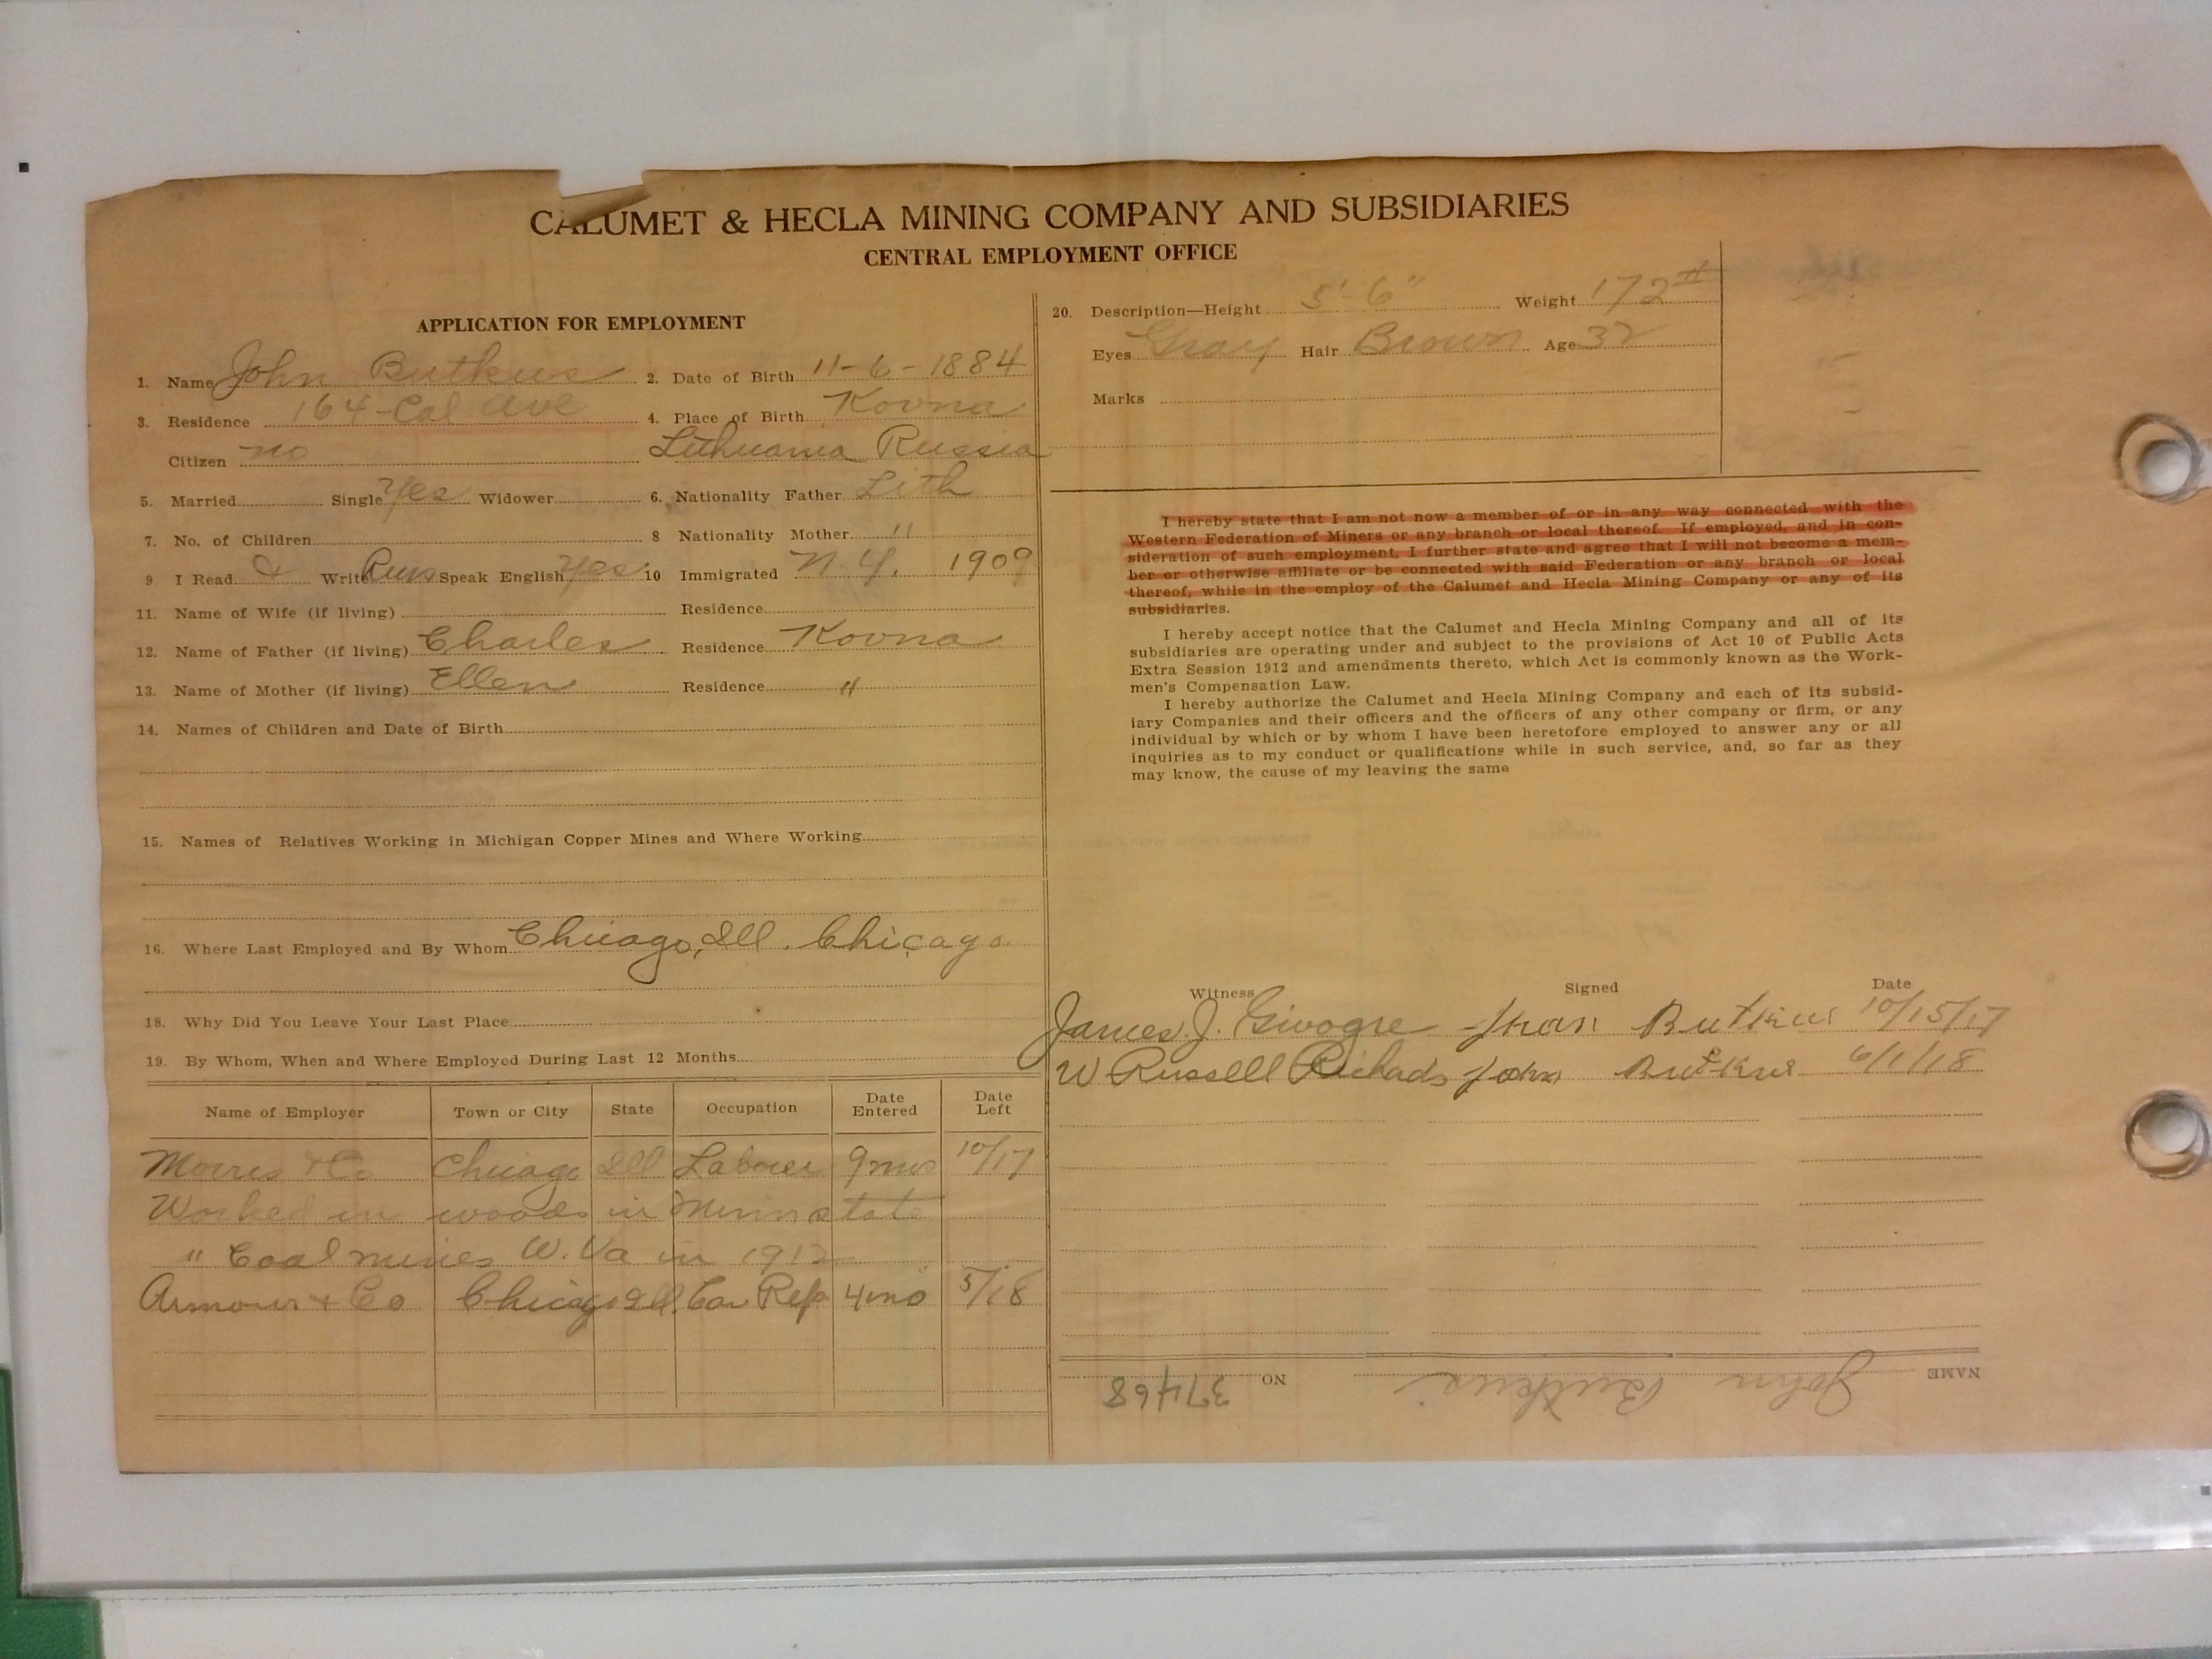 CALUMET & HECLA MINING COMPANY AND SUBSIDIARIES
CENTRAL EMPLOYMENT OFFICE
APPLICATION FOR EMPLOYMENT
1. Name John Butkus 2. Date of Birth 11-6-1884
3. Residence 164-Cal Ave 4. Place of Birth Kovna
Citizen no Lithuania Russia
5. Married Single Yes Widower 6. Nationality Father Lith
7. No. of Children 8 Nationality Mother "
9 I Read & Write Russ Speak English Yes 10 Immigrated N.Y. 1909
11. Name of Wife (if living) Residence
12. Name of Father (if living) Charles Residence Kovna
13. Name of Mother (if living) Ellen Residence "
14. Names of Children and Date of Birth
15. Names of Relatives Working in Michigan Copper Mines and Where Working
16. Where Last Employed and By Whom Chicago, Ill. Chicago
18. Why Did You Leave Your Last Place
19. By Whom, When and Where Employed During Last 12 Months
Name of Employer Town or City State Occupation Date Entered Date Left
Morris & Co Chicago Ill Laborer 9 mos 10/17
Worked in woods in Minn state
" Coal mines W. Va in 1912
Armour & Co Chicago Ill. Car Repr 4 mo 5/18
20. Description—Height 5'-6" Weight 172 #
Eyes Gray Hair Brown Age 32
Marks
I hereby state that I am not now a member of or in any way connected with the
Western Federation of Miners or any branch or local thereof. If employed, and in con-
sideration of such employment, I further state and agree that I will not become a mem-
ber or otherwise affiliate or be connected with said Federation or any branch or local
thereof, while in the employ of the Calumet and Hecla Mining Company or any of its
subsidiaries.
I hereby accept notice that the Calumet and Hecla Mining Company and all of its
subsidiaries are operating under and subject to the provisions of Act 10 of Public Acts
Extra Session 1912 and amendments thereto, which Act is commonly known as the Work-
men's Compensation Law.
I hereby authorize the Calumet and Hecla Mining Company and each of its subsid-
iary Companies and their officers and the officers of any other company or firm, or any
individual by which or by whom I have been heretofore employed to answer any or all
inquiries as to my conduct or qualifications while in such service, and, so far as they
may know, the cause of my leaving the same
Witness Signed Date
James J. Butkus 10/15/17
W Russell Richads John Butkus 6/1/18
NAME John Butkus NO 37468